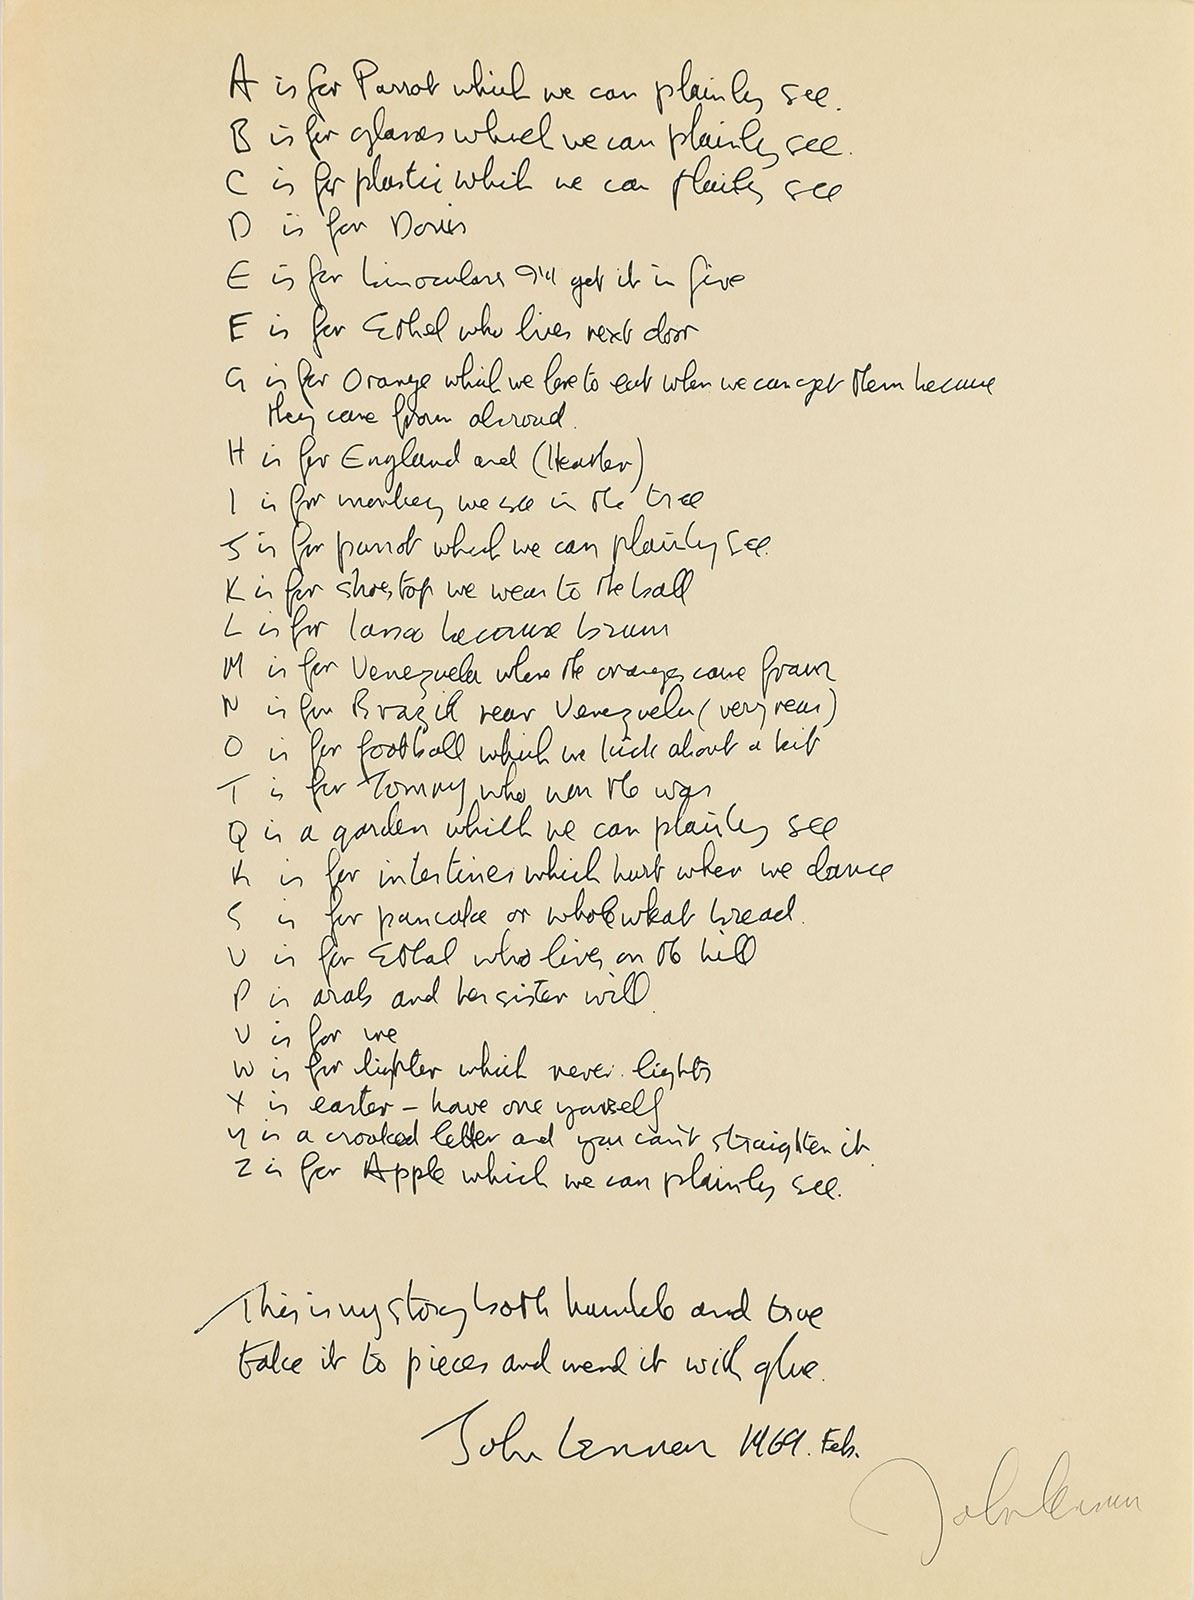 A is for Parrot which we can plainly see.
B is for glasses which we can plainly see.
C is for plastic which we can plainly see
D is for Doris
E is for binoculars I'll get it in five
F is for Ethel who lives next door
G is for Orange which we love to eat when we can get them because
they come from abroad.
H is for England and (Heather)
I is for monkey we see in the tree
J is for parrot which we can plainly see.
K is for shoestop we wear to the ball
L is for because brown
M is for Venezuela where the oranges come from
N is for Brazil near Venezuela (very near)
O is for football which we kick about a bit
T is for Tommy who won the war
Q is a garden which we can plainly see
R is for intestines which hurt when we dance
S is for pancake or wholewheat bread.
U is for Ethel who lives on the hill
P is arab and her sister will
V is for we
W is for lighter which never lights
X is easter – have one yourself
Y is a crooked letter and you can't straighten it
Z is for Apple which we can plainly see.
This is my story both humble and true
take it to pieces and mend it with glue.
John Lennon 1969. Feb.
John Lennon